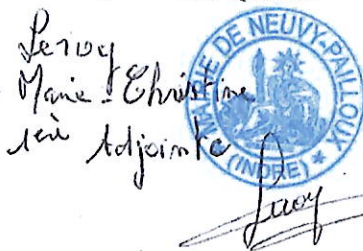 Leroy
Marie-Christine
1ère Adjointe
MAIRIE DE NEUVY-PAILLOUX
* (INDRE) *
Leroy